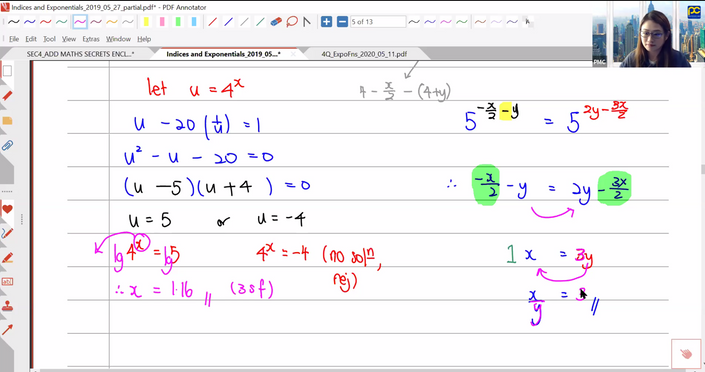 Indices and Exponentials_2019_05_27_partial.pdf* - PDF Annotator
File Edit Tool View Extras Window Help
5 of 13
SEC4_ADD MATHS SECRETS ENCL...*
Indices and Exponentials_2019_05_27_partial.pdf*
4Q_ExpoFns_2020_05_11.pdf
PMC
let u = 4^x
u - 20(1/u) = 1
u² - u - 20 = 0
(u - 5)(u + 4) = 0
u = 5 or u = -4
lg 4^x = lg 5 4^x = -4 (no solⁿ, rej)
∴ x = 1.16 // (3sf)
4 - x/2 - (4+y)
5^(-x/2 - y) = 5^(2y - 3x/2)
∴ -x/2 - y = 2y - 3x/2
1 x = 3y
x/y = 3 //